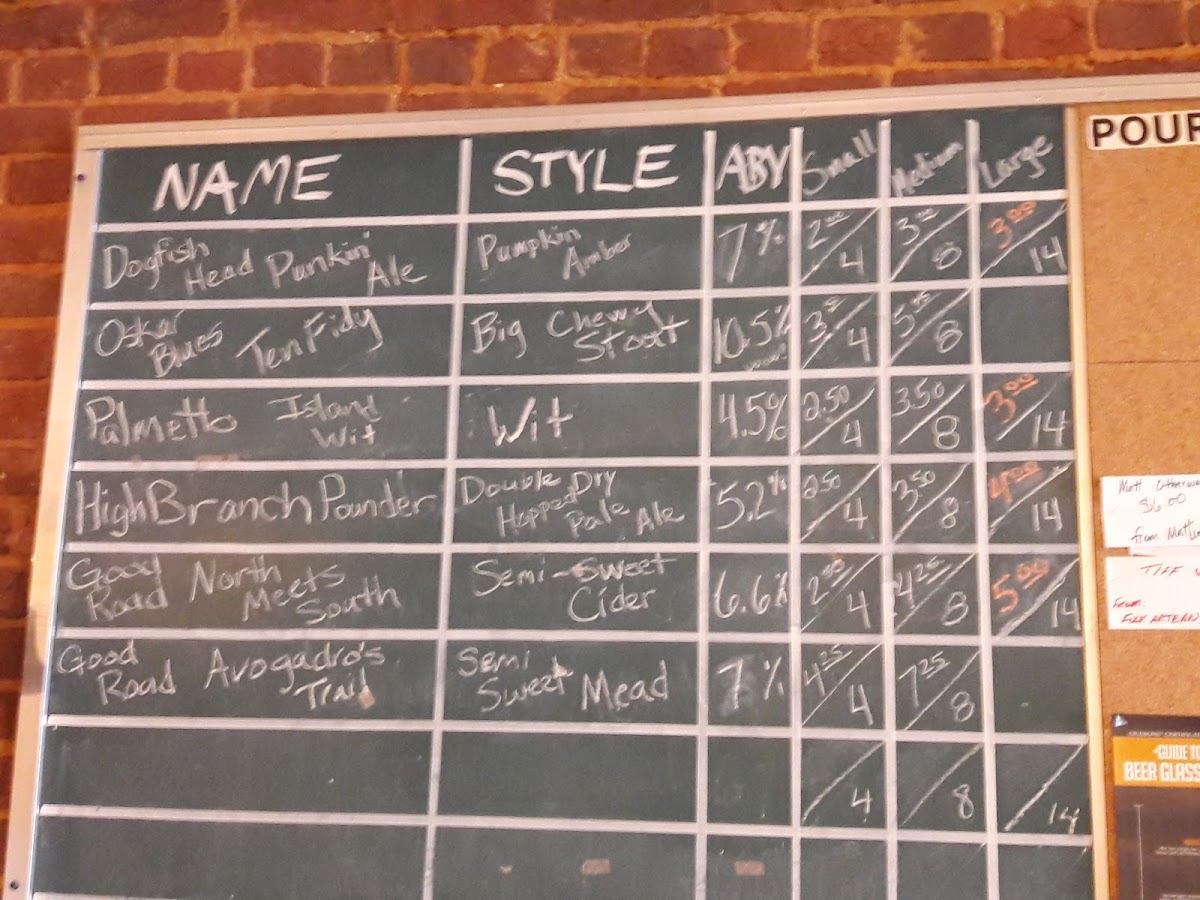 NAME STYLE ABV Small Medium Large
Dogfish Head Punkin' Ale Pumpkin Amber 7% 2.00/4 3.00/8 3.00/14
Oskar Blues TenFidy Big Chewy Stout 10.5% wow! 4 8
Palmetto Island Wit Wit 4.5% 2.50/4 3.50/8 3.00/14
HighBranch Pounder Double Dry Hopped Pale Ale 5.2% 2.50/4 3.50/8 4.00/14
Good Road North Meets South Semi-Sweet Cider 6.6% 2.50/4 4.25/8 5.00/14
Good Road Avogadro's Trail Semi Sweet Mead 7% 4.25/4 7.25/8
4 8 14
POUR
Matt
$6.00
from
TIFF
from:
GUIDE TO
BEER GLASS